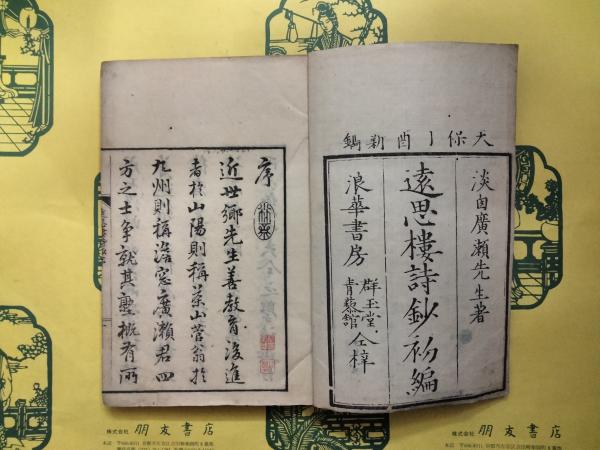 天保丁酉新鐫
淡窗廣瀬先生著
遠思樓詩鈔初編
浪華書房
群玉堂
青藜館
仝梓
序
近世鄉先生善教育後進
者於山陽則稱茶山菅翁於
九州則稱淡窓廣瀬君四
方之士爭就其塾概有所
株式会社 朋友書店
株式会社 朋友書店